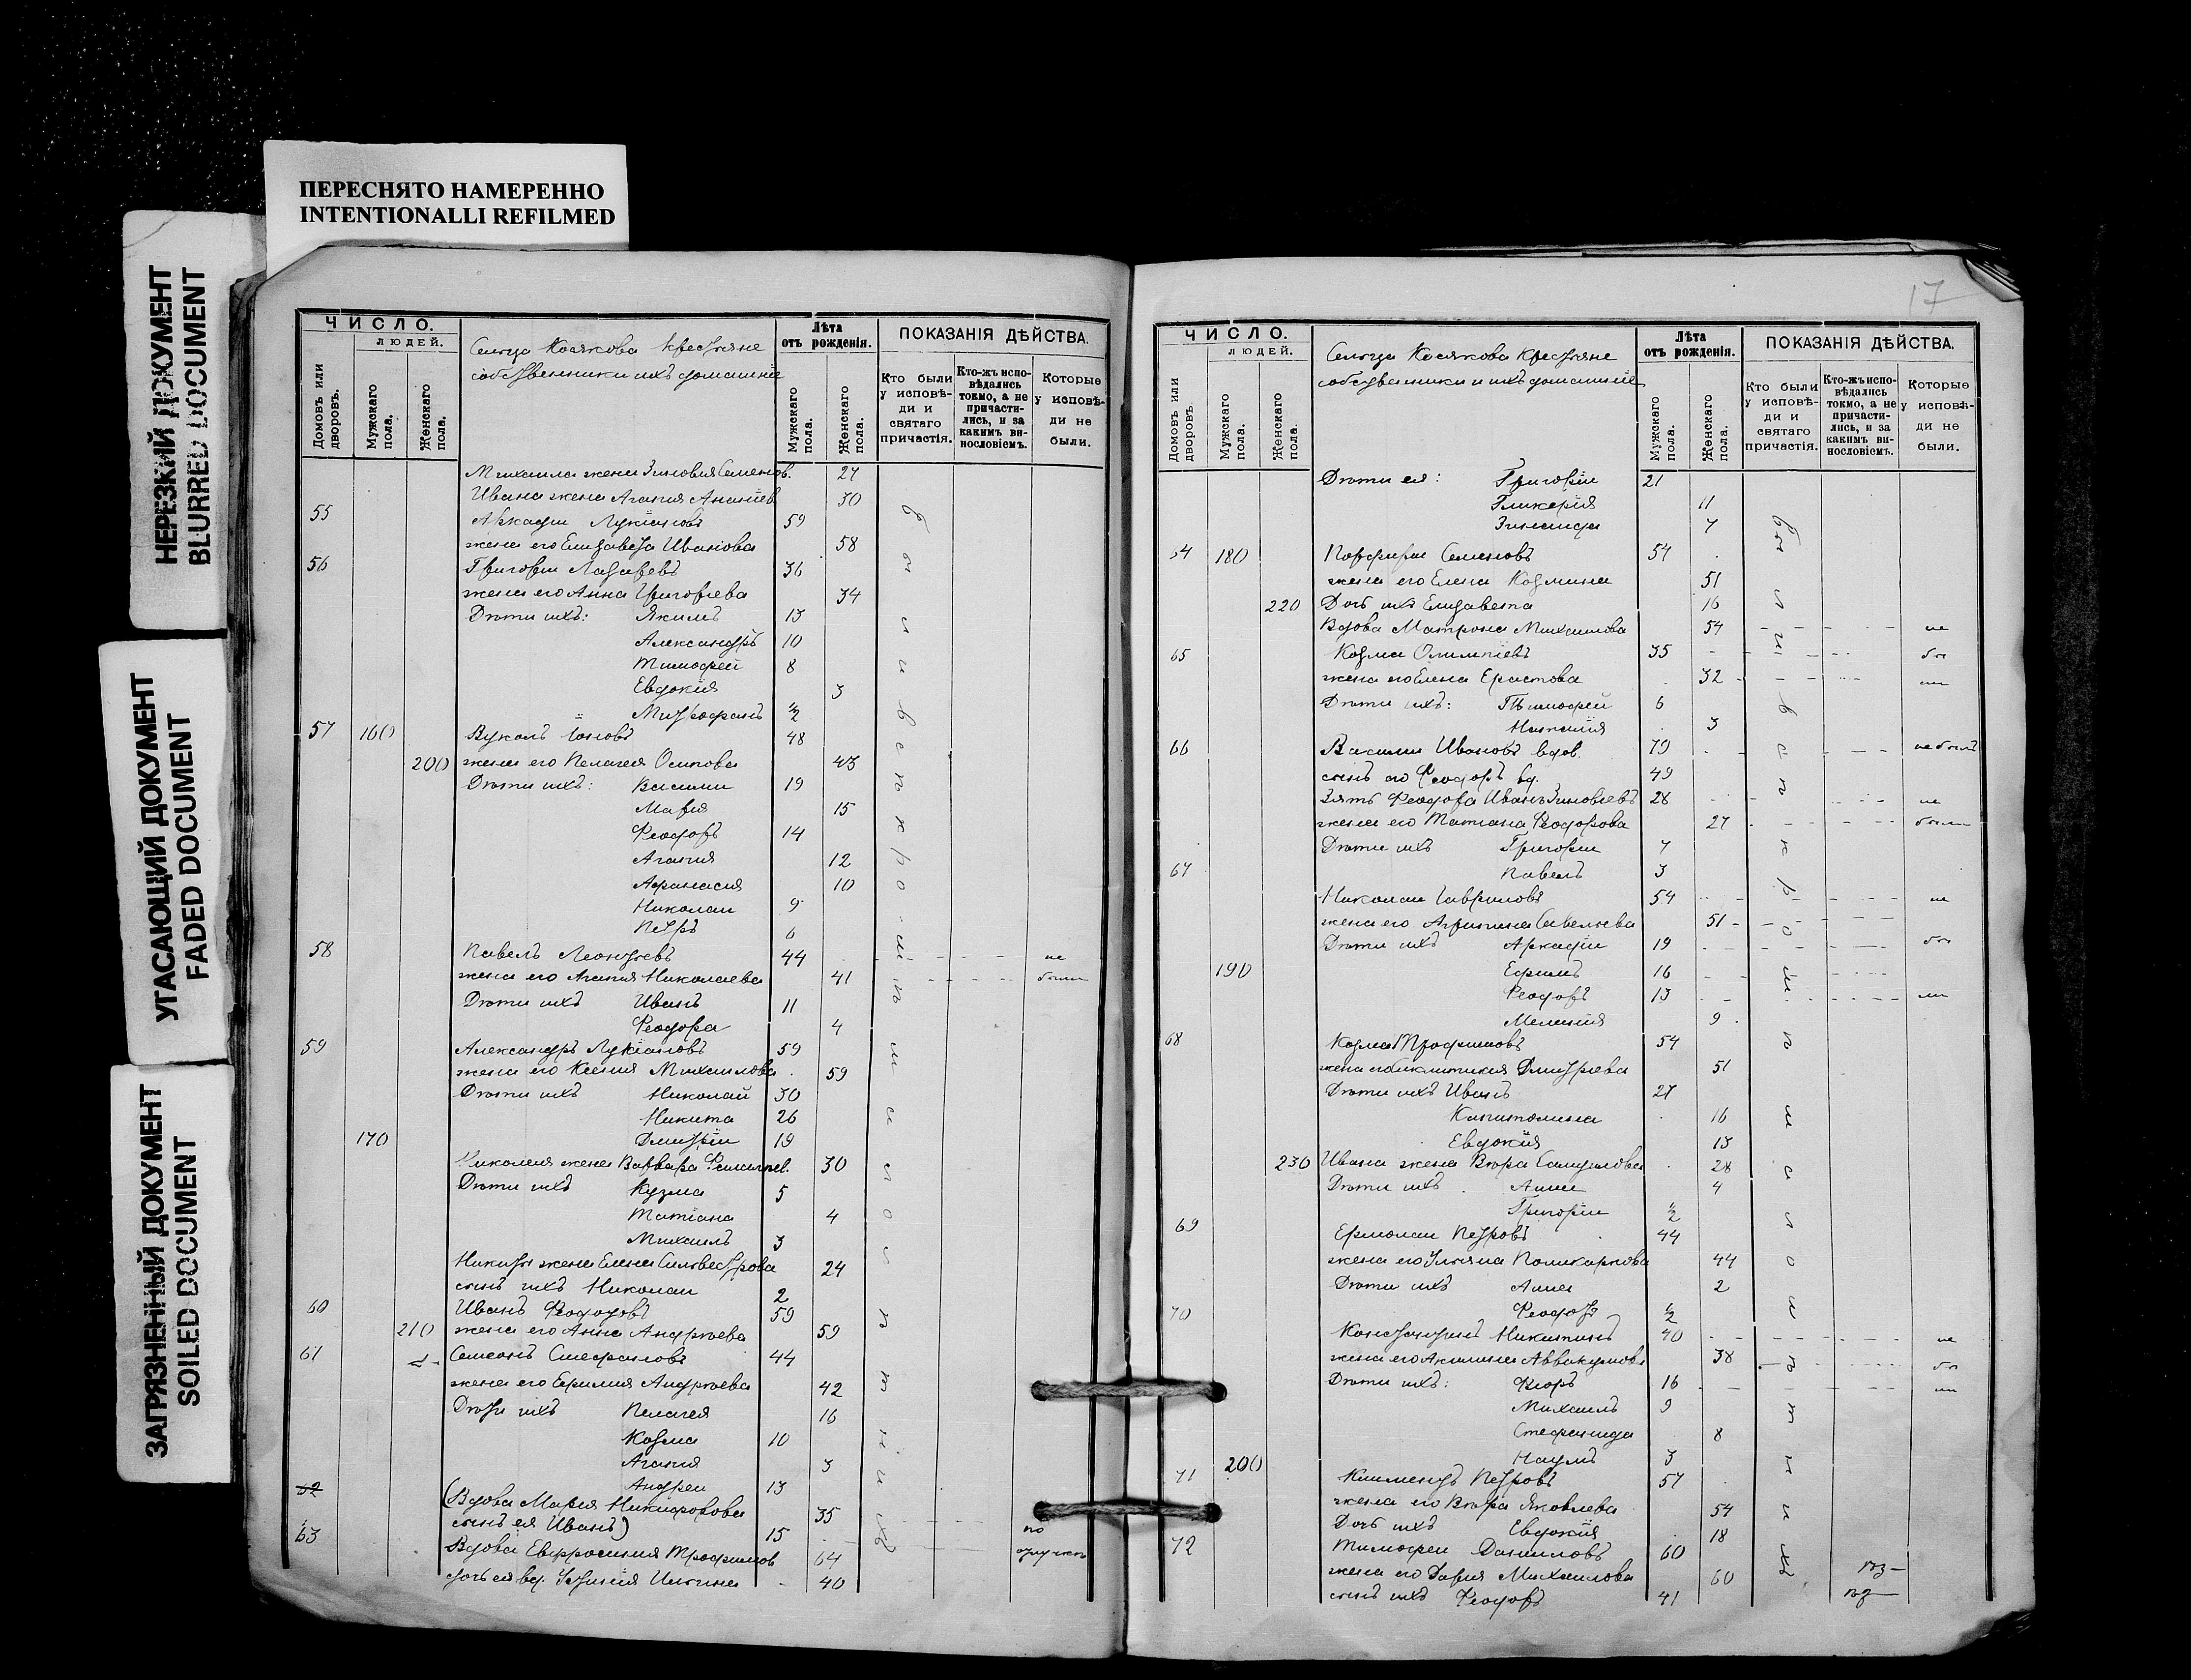 ПЕРЕСНЯТО НАМЕРЕННО
INTENTIONALLI REFILMED
НЕРЕЗКИЙ ДОКУМЕНТ
BLURRED DOCUMENT
УГАСАЮЩИЙ ДОКУМЕНТ
FADED DOCUMENT
ЗАГРЯЗНЕННЫЙ ДОКУМЕНТ
SOILED DOCUMENT
ЧИСЛО.
людей.
Домовъ или дворовъ.
Мужскаго пола.
Женскаго пола.
Сельца Косякова крестьяне
собственники ихъ домашніе
Лѣта
отъ рожденія.
Мужскаго пола.
Женскаго пола.
ПОКАЗАНІЯ ДѢЙСТВА.
Кто были у исповѣди и святаго причастія.
Кто-жъ исповѣдались токмо, а не причастились, и за какимъ винословіемъ.
Которые у исповѣди не были.
Михаила жена Зиновия Семенов. 27
Ивана жена Агапия Ананіев 30
55 Аркадии Лукіановъ 59
жена его Елизавета Иванова 58
56 Григории Лазаревъ 36
жена его Анна Григориева 34
Дѣти ихъ: Якимъ 13
Александръ 10
Тимофей 8
Евдокія 3
Митрофанъ ½
57 160 Вуколъ Іоновъ 48
200 жена его Пелагея Осипова 43
Дѣти ихъ: Василии 19
Мария 15
Феодоръ 14
Агапия 12
Афанасия 10
Николаи 9
Петръ 6
58 Павелъ Леонтьевъ 44 не
жена его Агапия Николаева 41 были
Дѣти ихъ Иванъ 11
Феодора 4
59 Александръ Лукіановъ 59
жена его Ксения Михаилова 59
Дѣти ихъ Николай 30
Никита 26
170 Дмитрій 19
Николая жена Варвара 30
Дѣти ихъ Кузма 5
Татіана 4
Михаилъ 3
Никиты жена Елена Силвестрова 24
сынъ ихъ Николаи 2
60 Иванъ Феодоровъ 59
210 жена его Анна Андреева 59
61 Симеонъ Стефановъ 44
жена его Ефимия Андреева 42
Дѣти ихъ Пелагея 16
Козма 10
Агапия 3
Андреи 13
62 (Вдова Мария Никифорова 35
сынъ ея Иванъ) 15 по
63 Вдова Евфросиния Трофимов 64 отлучкѣ
дочь ея вд. Устинія Ильина 40
были в исповѣди и св. причастия
17
ЧИСЛО.
людей.
Домовъ или дворовъ.
Мужскаго пола.
Женскаго пола.
Сельца Косякова крестьяне
собственники и ихъ домашніе
Лѣта
отъ рожденія.
Мужскаго пола.
Женскаго пола.
ПОКАЗАНІЯ ДѢЙСТВА.
Кто были у исповѣди и святаго причастія.
Кто-жъ исповѣдались токмо, а не причастились, и за какимъ винословіемъ.
Которые у исповѣди не были.
Дѣти ея: Григоріи 21
Гликерія 11
Зинаида 7
180 Порфирии Семеновъ 54
жена его Елена Козмина 51
220 Дочь ихъ Елизавета 16
Вдова Матрона Михаилова 54 не
65 Козма Олимпіевъ 35 бы
жена его Елена Ерастова 32 ли
Дѣти ихъ: Тимофей 6
Наталія 3
66 Василии Ивановъ вдов. 79 не былъ
сынъ его Феодоръ вд. 49
Зять Феодора Иванъ Зиновьевъ 28 не
жена его Татиана Феодорова 27 были
Дѣти ихъ Григории 7
67 Павелъ 3
Николаи Гавриловъ 54 не
жена его Агрипина Савельева 51
Дѣти ихъ Аркадіи 19 бы
190 Ефимъ 16
Феодоръ 13 ли
Мелания 9
68 Козма Трофимовъ 54
жена его Дмитриева 51
Дѣти ихъ Иванъ 27
Капитолина 16
Евдокія 13
230 Ивана жена Вѣра Самуилова 28
Дѣти ихъ Анна 4
Григории ½
69 Ермолаи Петровъ 44
жена его Ульяна Поликарпова 44
Дѣти ихъ Анна 2
70 Феодоръ ½
Константинъ Никитинъ 40 не
жена его Акилина Аввакумова 38 бы
Дѣти ихъ: Флоръ 16 ли
Михаилъ 9
Стефанида 8
200 Наумъ 3
71 Климентъ Петровъ 57
жена его Вѣра Яковлева 54
Дочь ихъ Евдокія 18
72 Тимофеи Даниловъ 60
жена его Дария Михаилова 60
сынъ ихъ Феодоръ 41